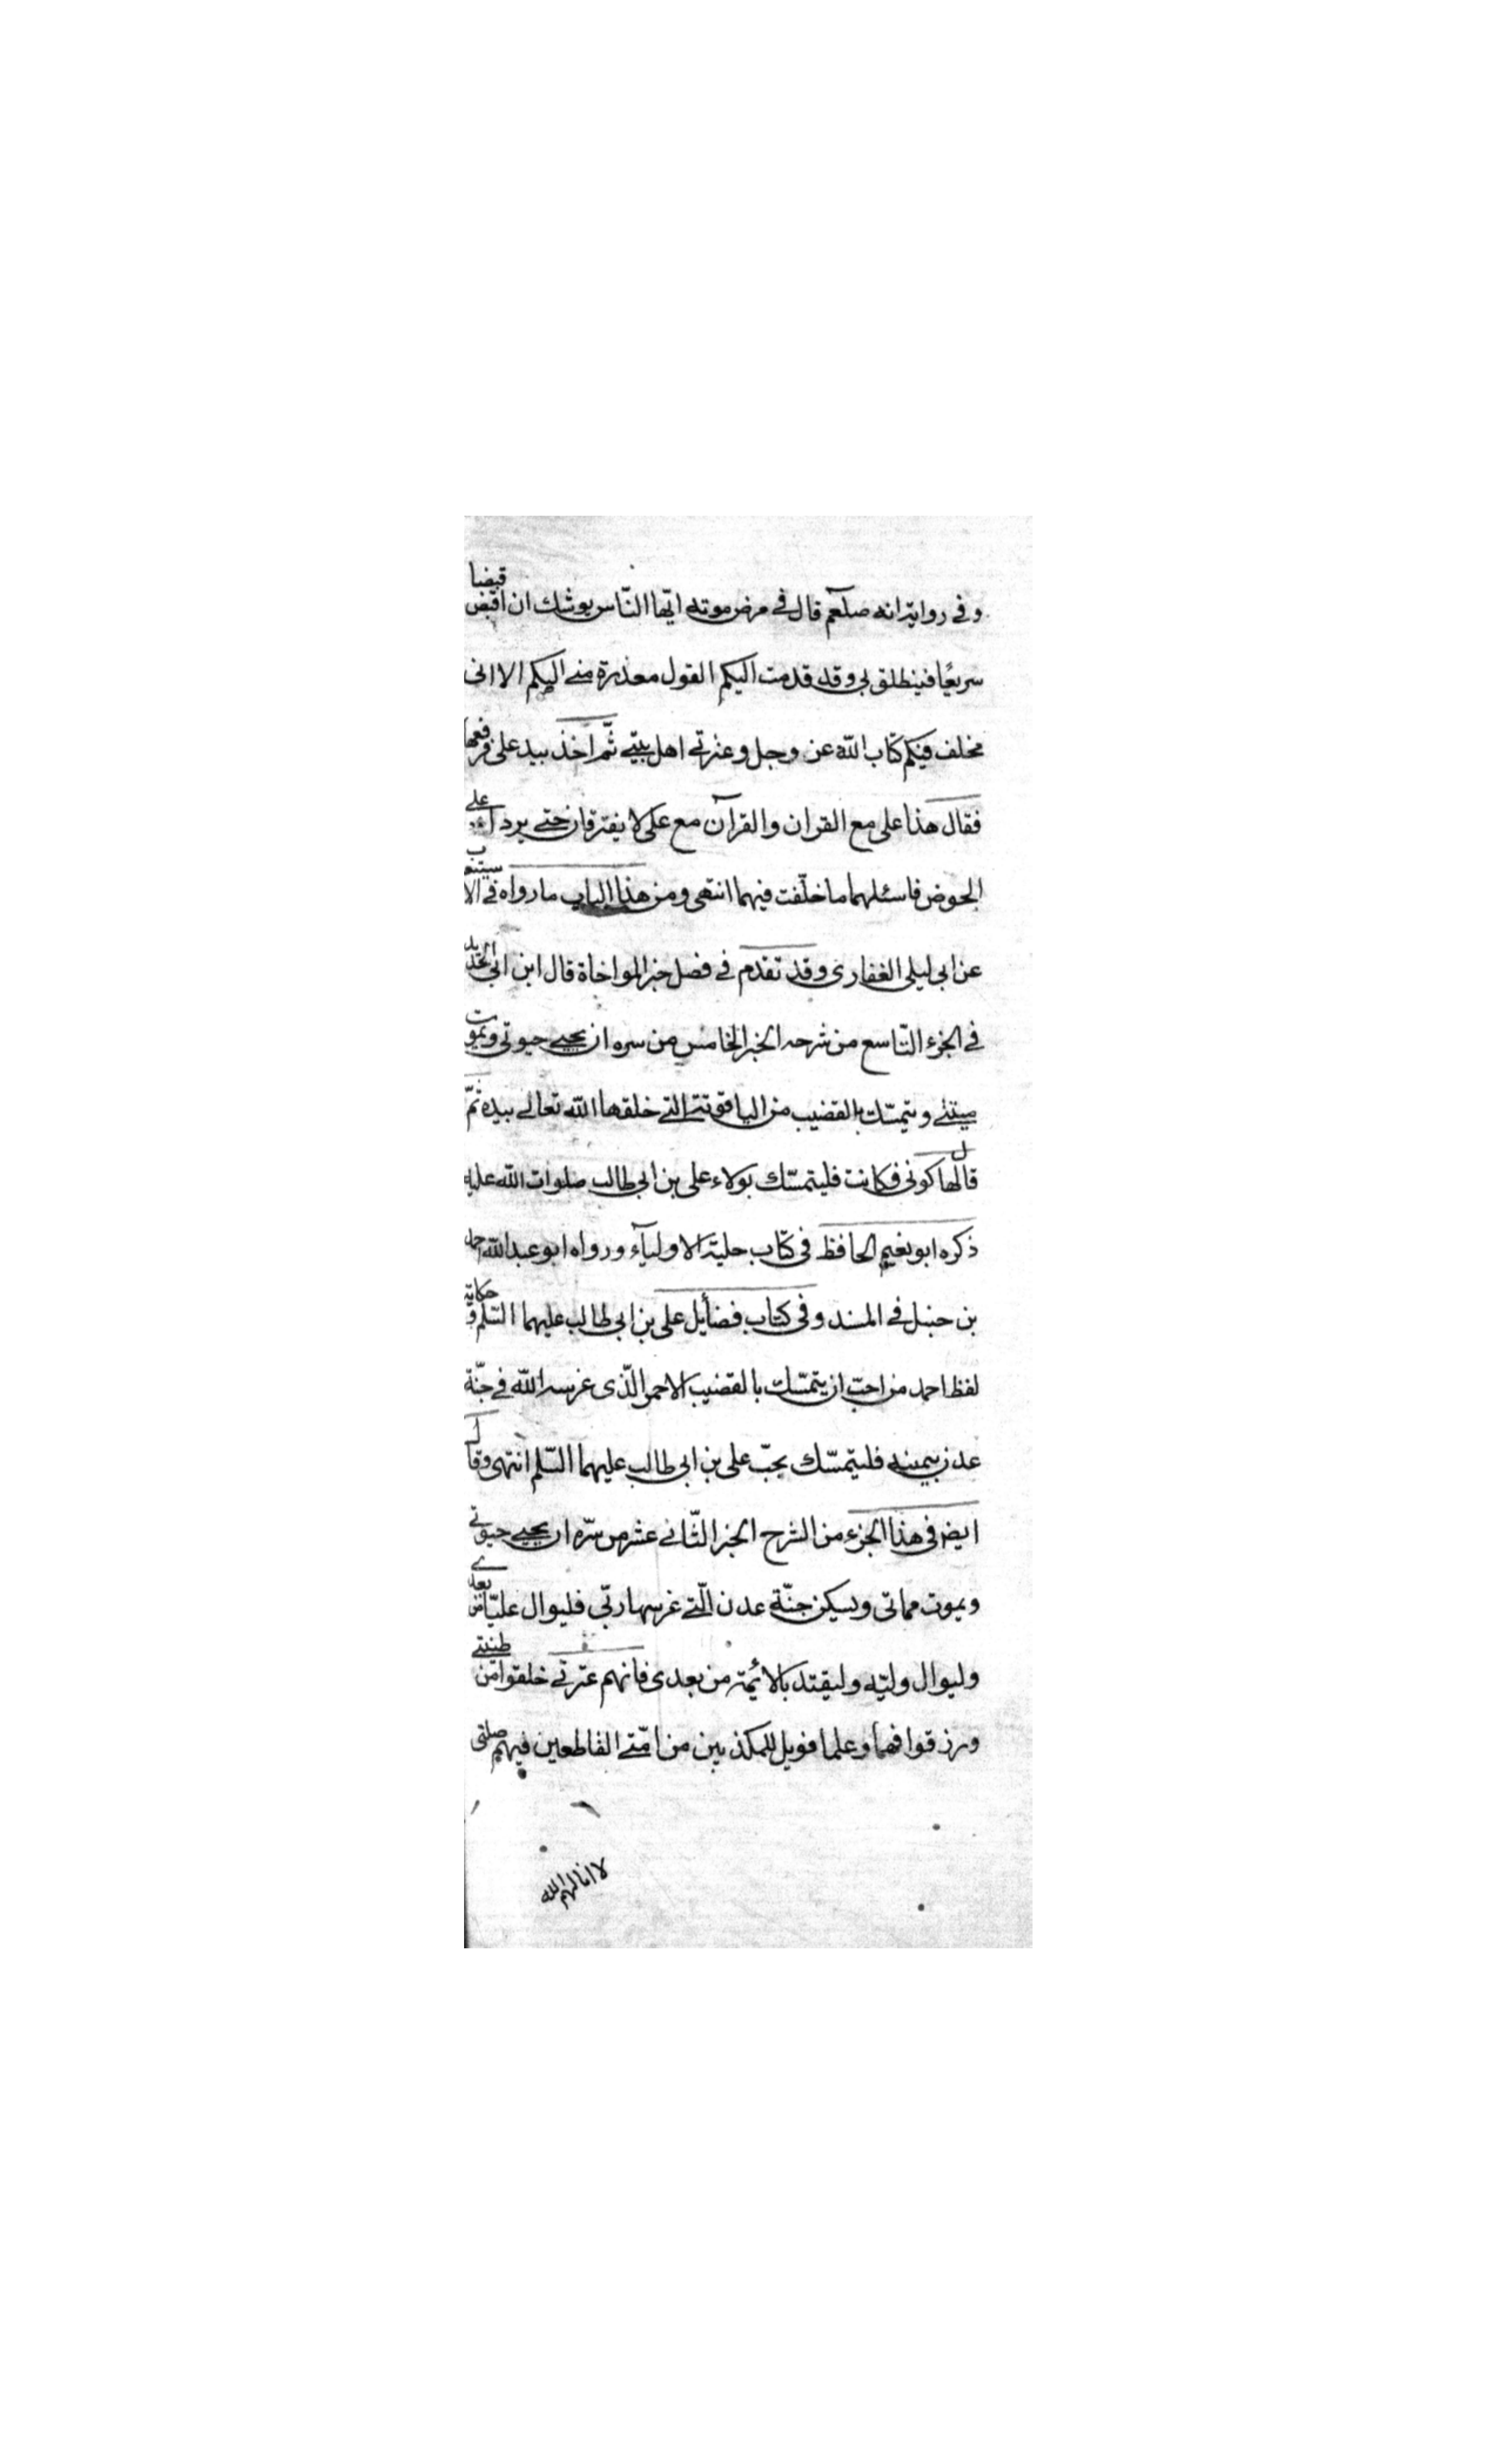 وفي رواية انه صلعم قال في مرض موته ايّها النّاس يوشك ان اقبض قبضا
سريعًا فينطلق بي وقد قدمت اليكم القول معذرة مني اليكم الا اني
مخلف فيكم كتاب الله عز وجل وعترتي اهل بيتي ثمّ اخذ بيد علي فرفعها
فقال هذا علي مع القران والقرآن مع علي لا يفترقان حتى يردا علي
الحوض فاسئلهما ما خلّفت فيهما انتهى ومن هذا الباب ما رواه في الاستيعاب
عن ابي ليلى الغفاري وقد تقدم في فصل خبر المواخاة قال ابن ابي الحديد
في الجزء التّاسع من شرحه الخبر الخامس من سره ان يحيى حيوتي ويموت
ميتتي ويتمسّك بالقضيب من الياقوتة التي خلقها الله تعالى بيده ثمّ
قال لها كوني فكانت فليتمسّك بولاء علي بن ابي طالب صلوات الله عليه
ذكره ابو نعيم الحافظ في كتاب حلية الاوليآء ورواه ابو عبد الله احمد
بن حنبل في المسند وفي كتاب فضايل علي بن ابي طالب عليهما السّلم وحكاية
لفظ احمد من احبّ ان يتمسّك بالقضيب الاحمر الّذي غرسه الله في جنّة
عدن بيمينه فليتمسّك بحبّ علي بن ابي طالب عليهما السّلم انتهى وقال
ايضا في هذا الجزء من الشرح الخبر الثّاني عشر من سرّه ان يحيى حيوتي
ويموت مماتي ويسكن جنّة عدن الّتي غرسها ربّي فليوال عليّا من بعدي
وليوال وليّه وليقتد بالائمة من بعدي فانهم عترتي خلقوا من طينتي
ورزقوا فهما وعلما فويل للمكذبين من امّتي القاطعين فيهم صلتي
لا انالهم الله